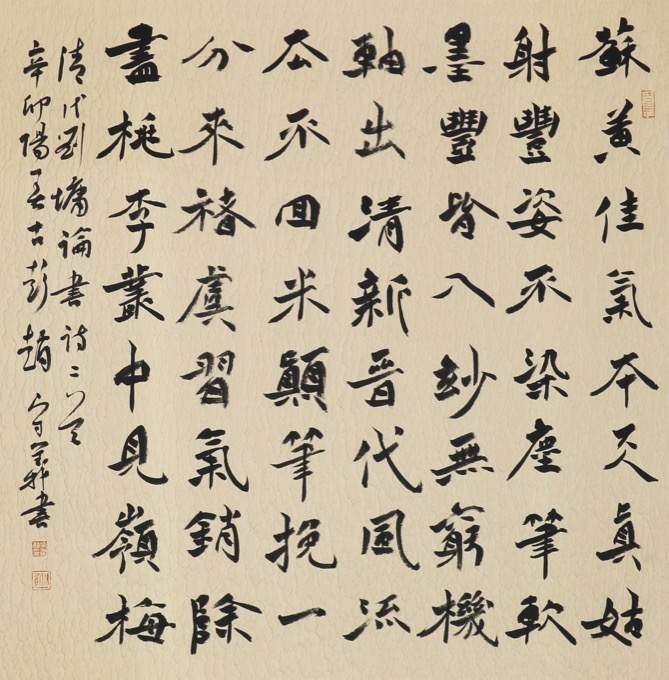 蘇黄佳氣本天真姑
射豐姿不染塵筆軟
墨豐皆入玅無窮機
軸出清新晉代風流
厺不回米顛筆挽一
分來褚虞習氣銷除
盡桃李叢中見嶺梅
清代劉墉論書詩二首
辛卯陽春古彭趙書